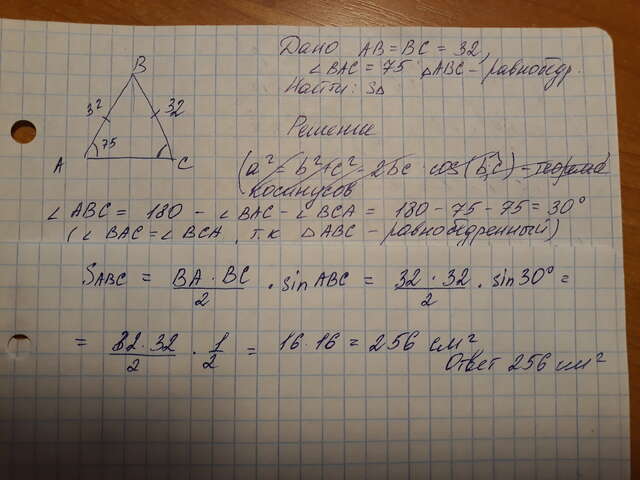 A
32
75
B
32
C
Дано AB = BC = 32
∠BAC = 75 △ABC – равнобедр.
Найти: S△
Решение
(a² = b² + c² - 2bc · cos(b,c) = теорема
косинусов
∠ABC = 180 - ∠BAC - ∠BCA = 180 - 75 - 75 = 30°
(∠BAC = ∠BCA, т.к △ABC – равнобедренный)
SABC = BA · BC / 2 · sin ABC = 32 · 32 / 2 · sin 30° =
= 32 · 32 / 2 · 1 / 2 = 16 · 16 = 256 см²
Ответ 256 см²